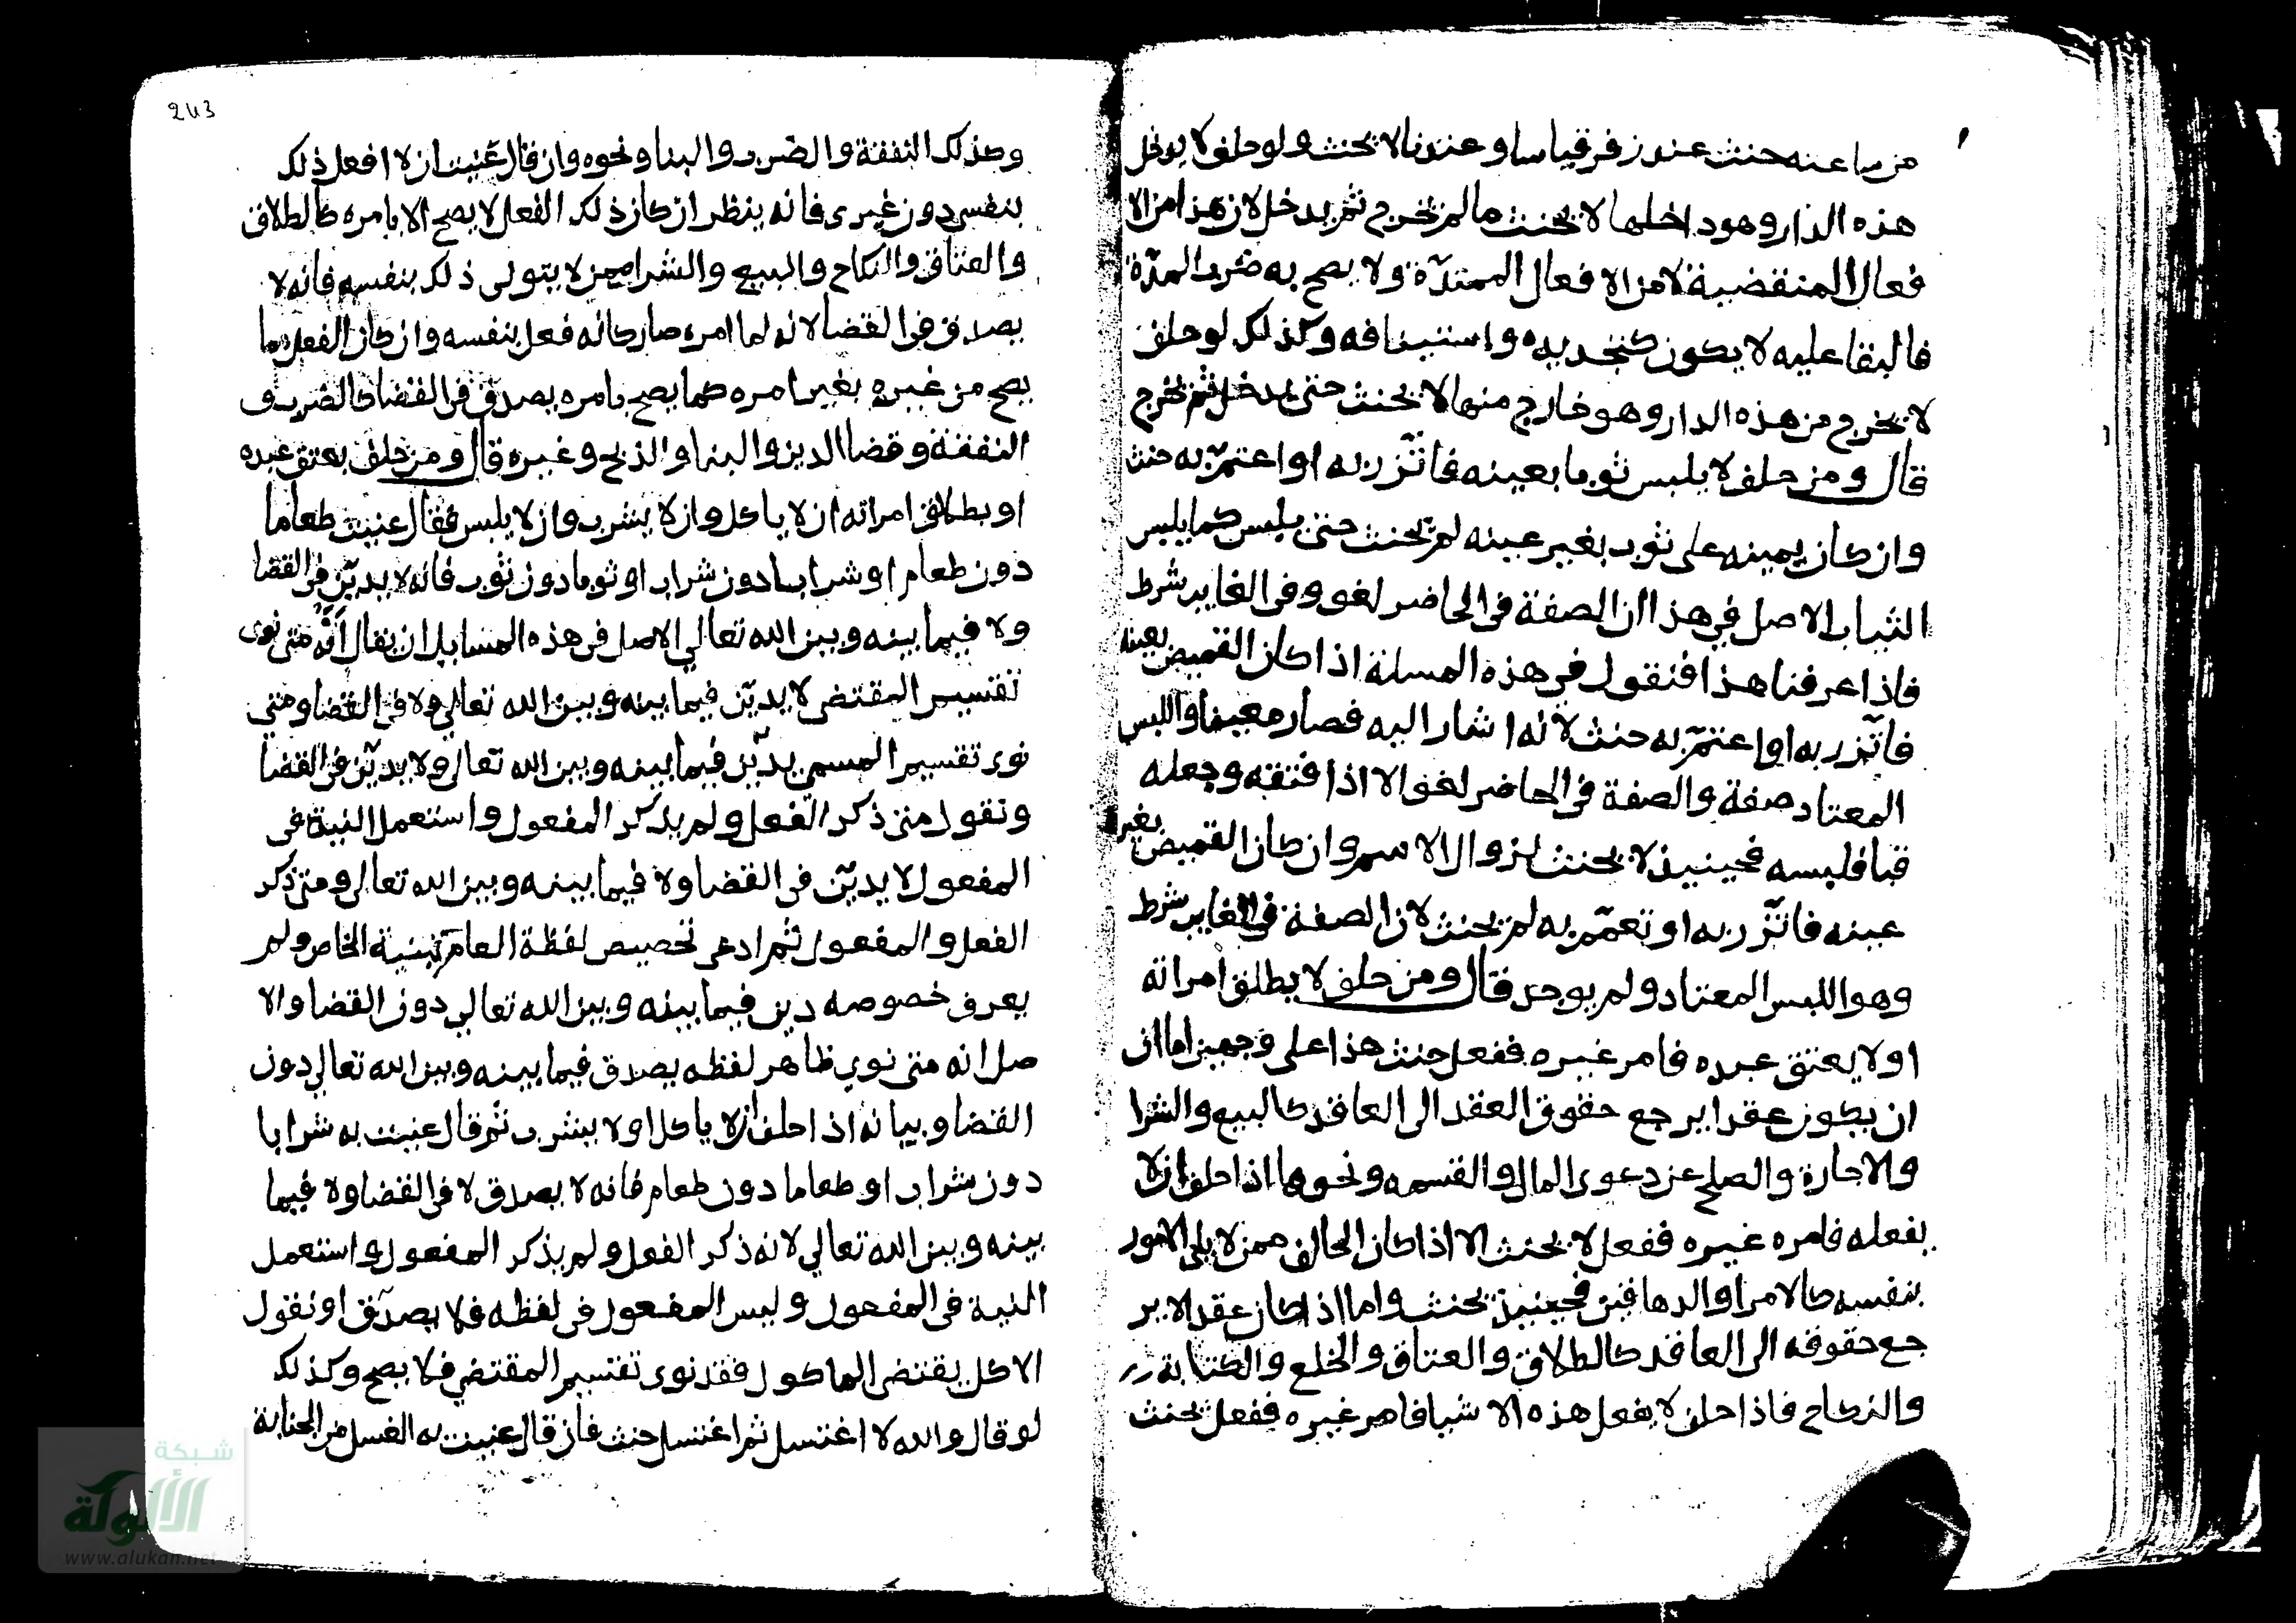 من ساعته حنث عند زفر قياسا وعندنا لا يحنث ولو حلف لا يدخل
هذه الدار وهو داخلها لا يحنث ما لم يخرج ثم يدخل لان هذا من الا
فعال المنقضية لا من الافعال الممتدّة ولا يصح به ضرب المدّة
فالبقا عليه لا يكون كتجديده واستينافه وكذلك لو حلف
لا يخرج من هذه الدار وهو خارج منها لا يحنث حتى يدخل ثم يخرج
قال ومن حلف لا يلبس ثوبا بعينه فاتّزر به او اعتمّ به حنث
وان كان يمينه على ثوب بغير عينه لم يحنث حتى يلبس كما يلبس
الثياب الاصل في هذا ان الصفة في الحاضر لغو وفي الغايب شرط
فاذا عرفنا هذا فنقول في هذه المسلة اذا كان القميص بعينه
فاتّزر به او اعتمّ به حنث لانه اشار اليه فصار معينا واللبس
المعتاد صفة والصفة في الحاضر لغو الا اذا فتقه وجعله
قبا فلبسه فحينيذ لا يحنث لزوال الاسم وان كان القميص بغير
عينه فاتّزر به او تعمّم به لم يحنث لان الصفة في الغايب شرط
وهو اللبس المعتاد ولم يوجد قال ومن حلف لا يطلق امراته
او لا يعتق عبده فامر غيره ففعل حنث هذا على وجهين اما ان
ان يكون عقدا يرجع حقوق العقد الى العاقد كالبيع والشرا
والاجارة والصلح عن دعوى المال والقسمه ونحوها اذا حلف ان لا
يفعله فامره غيره ففعل لا يحنث الا اذا كان الحالف ممن لا يلى الامور
بنفسه كالامرا والدهاقين فحينيذ يحنث واما اذا كان عقدا لا ير
جع حقوقه الى العاقد كالطلاق والعتاق والخلع والكتابة
والنكاح فاذا حلف لا يفعل هذه الاشيا فامر غيره ففعل يحنث
243
وكذلك النفقة والضرب والبنا ونحوه وان قال عنيت ان لا افعل ذلك
بنفسى دون غيرى فانه ينظر ان كان ذلك الفعل لا يصح الا بامره كالطلاق
والعتاق والنكاح والبيع والشرا ممن لا يتولى ذلك بنفسه فانه لا
يصدق في القضا لانه لما امره صار كانه فعل بنفسه وان كان الفعل مما
يصح من غيره بغير امره كما يصح بامره يصدق في القضا كالضرب و
النفقة وقضا الدين والبنا والذبح وغيره قال ومن حلف بعتق عبده
او بطلاق امراته ان لا ياكل وان لا يشرب وان لا يلبس فقال عنيت طعاما
دون طعام او شرابا دون شراب او ثوبا دون ثوب فانه لا يديّن في القضا
ولا فيما بينه وبين الله تعالى الاصل في هذه المسايل ان نقال انّه متى نوى
تقسيم المقتضى لا يديّن فيما بينه وبين الله تعالى ولا في القضا ومتى
نوى تقسيم المسمى يديّن فيما بينه وبين الله تعالى ولا يديّن في القضا
ونقول متى ذكر الفعل ولم يذكر المفعول واستعمل النية في
المفعول لا يديّن في القضا ولا فيما بينه وبين الله تعالى ومتى ذكر
الفعل والمفعول ثم ادعى تخصيص لفظة العام بنية الخاص ولم
يعرف خصوصه دين فيما بينه وبين الله تعالى دون القضا والا
صل انه متى نوى ظاهر لفظه يصدق فيما بينه وبين الله تعالى دون
القضا وبيانه اذا حلف ان لا ياكل او لا يشرب ثم قال عنيت به شرابا
دون شراب او طعاما دون طعام فانه لا يصدق لا في القضا ولا فيما
بينه وبين الله تعالى لانه ذكر الفعل ولم يذكر المفعول واستعمل
النية في المفعول وليس المفعول في لفظه فلا يصدّق او نقول
الاكل يقتضى الماكول فقد نوى تقسيم المقتضى فلا يصح وكذلك
لو قال والله لا اغتسل ثم اغتسل حنث فان قال عنيت به الغسل من الجنابة
شبكة
الألوكة
www.alukah.net